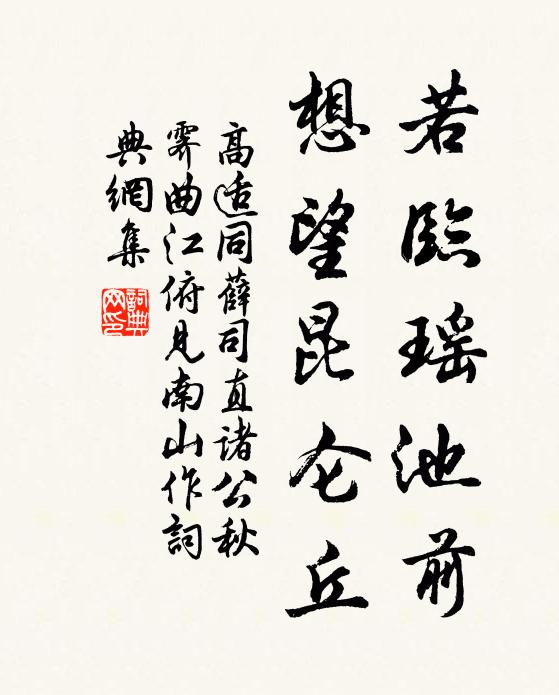 若臨瑶池前
想望昆仑丘
高适同薛司直诸公秋
霁曲江俯見南山作詞
典網集
詞典網印